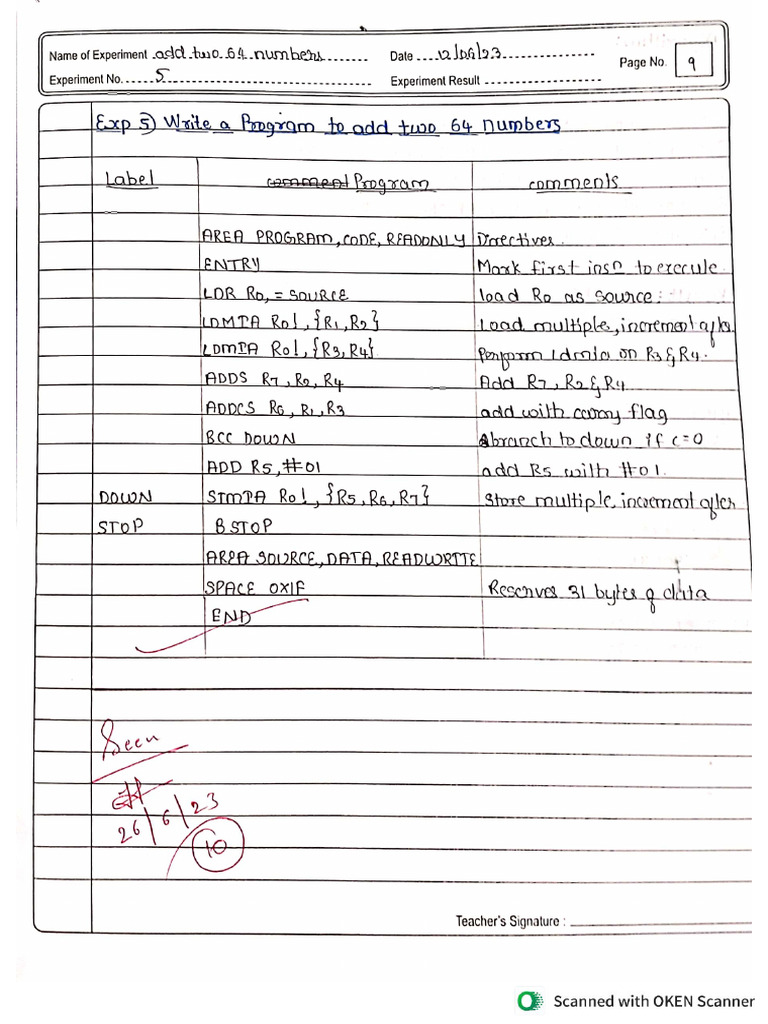 Name of Experiment add two 64 numbers Date 12/06/23 Page No. 9
Experiment No. 5 Experiment Result
Exp 5) Write a Program to add two 64 numbers
Label comment Program comments
AREA PROGRAM, CODE, READONLY Directives
ENTRY Mark first insn to execute
LDR R0, = SOURCE load R0 as source:
LDMIA R0!, {R1, R2} Load multiple, increment after
LDMIA R0!, {R3, R4} Perform ldmia on R3 & R4.
ADDS R7, R2, R4 Add R7, R2 & R4
ADDCS R6, R1, R3 add with carry flag
BCC DOWN branch to down if c=0
ADD R5, #01 add R5 with #01.
DOWN STMIA R0!, {R5, R6, R7} Store multiple increment after
STOP B STOP
AREA SOURCE, DATA, READWRITE
SPACE 0X1F Reserves 31 bytes of data
END
Seen
26/6/23
10
Teacher's Signature :
Scanned with OKEN Scanner